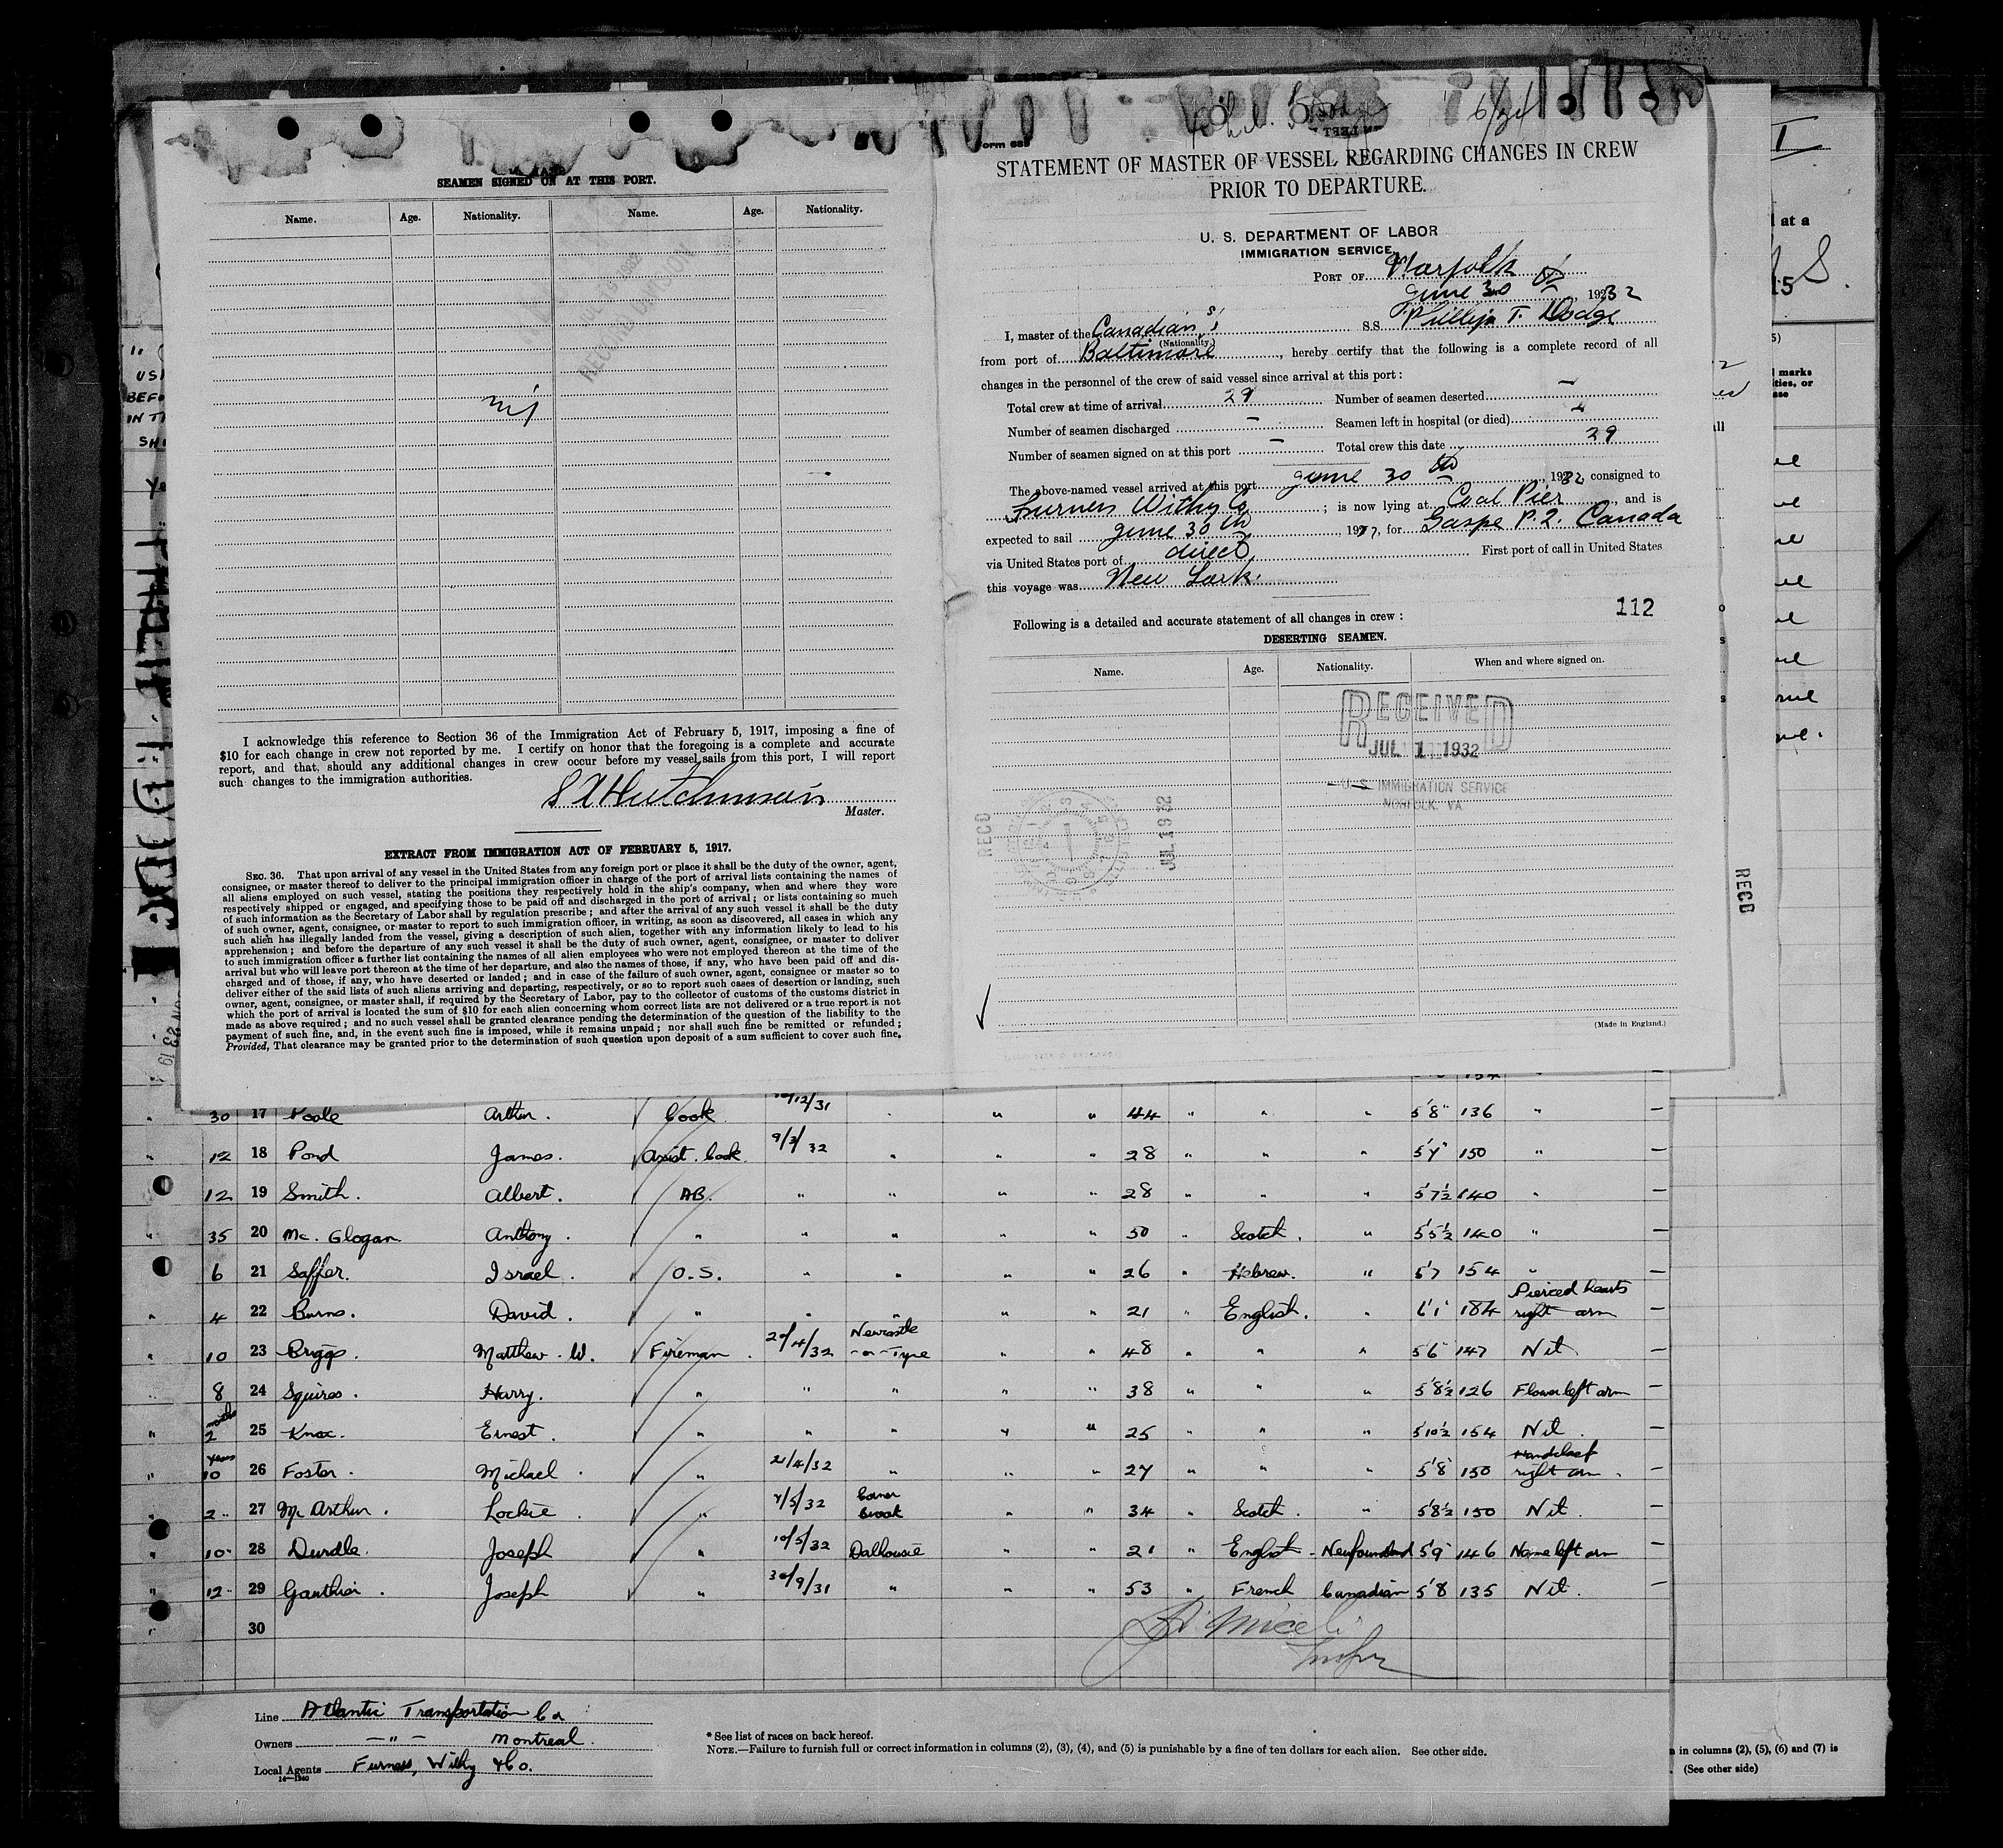 SEAMEN SIGNED ON AT THIS PORT.
Name. Age. Nationality. Name. Age. Nationality.
I acknowledge this reference to Section 36 of the Immigration Act of February 5, 1917, imposing a fine of
$10 for each change in crew not reported by me. I certify on honor that the foregoing is a complete and accurate
report, and that, should any additional changes in crew occur before my vessel sails from this port, I will report
such changes to the immigration authorities.
S A Hutchinson
Master.
EXTRACT FROM IMMIGRATION ACT OF FEBRUARY 5, 1917.
SEC. 36. That upon arrival of any vessel in the United States from any foreign port or place it shall be the duty of the owner, agent,
consignee, or master thereof to deliver to the principal immigration officer in charge of the port of arrival lists containing the names of
all aliens employed on such vessel, stating the positions they respectively hold in the ship's company, when and where they were
respectively shipped or engaged, and specifying those to be paid off and discharged in the port of arrival; or lists containing so much
of such information as the Secretary of Labor shall by regulation prescribe; and after the arrival of any such vessel it shall be the duty
of such owner, agent, consignee, or master to report to such immigration officer, in writing, as soon as discovered, all cases in which any
such alien has illegally landed from the vessel, giving a description of such alien, together with any information likely to lead to his
apprehension; and before the departure of any such vessel it shall be the duty of such owner, agent, consignee, or master to deliver
to such immigration officer a further list containing the names of all alien employees who were not employed thereon at the time of the
arrival but who will leave port thereon at the time of her departure, and also the names of those, if any, who have been paid off and dis-
charged and of those, if any, who have deserted or landed; and in case of the failure of such owner, agent, consignee or master so to
deliver either of the said lists of such aliens arriving and departing, respectively, or so to report such cases of desertion or landing, such
owner, agent, consignee, or master shall, if required by the Secretary of Labor, pay to the collector of customs of the customs district in
which the port of arrival is located the sum of $10 for each alien concerning whom correct lists are not delivered or a true report is not
made as above required; and no such vessel shall be granted clearance pending the determination of the question of the liability to the
payment of such fine, and, in the event such fine is imposed, while it remains unpaid; nor shall such fine be remitted or refunded;
Provided, That clearance may be granted prior to the determination of such question upon deposit of a sum sufficient to cover such fine.
6/34
STATEMENT OF MASTER OF VESSEL REGARDING CHANGES IN CREW
PRIOR TO DEPARTURE.
U. S. DEPARTMENT OF LABOR
IMMIGRATION SERVICE
PORT OF Norfolk
June 30 th, 1932
I, master of the Canadian S.S. Phillip T. Dodge
(Nationality.)
from port of Baltimore, hereby certify that the following is a complete record of all
changes in the personnel of the crew of said vessel since arrival at this port:
Total crew at time of arrival 29 Number of seamen deserted —
Number of seamen discharged — Seamen left in hospital (or died)
Number of seamen signed on at this port — Total crew this date 29
The above-named vessel arrived at this port June 30 th, 1932 consigned to
Furness Withy Co; is now lying at Coal Pier, and is
expected to sail June 30 th, 19 , for Gaspe P.Q. Canada
via United States port of direct. First port of call in United States
this voyage was New York.
112
Following is a detailed and accurate statement of all changes in crew:
DESERTING SEAMEN.
Name. Age. Nationality. When and where signed on.
RECEIVED
JUL 1 1932
U. S. IMMIGRATION SERVICE
NORFOLK, VA
RECD
JUL 1 9 32
RECD
(Made in England.)
30 17 Poole Arthur. Cook 10/12/31 " " " 44 " " " 5'8" 136 " —
" 12 18 Pond James. Assist. Cook 9/3/32 " " " 28 " " " 5'4" 150 " —
12 19 Smith. Albert. AB. " " " " 28 " " " 5'7½ 140 " —
" 35 20 Mc. Glogan Anthony. " " " " " 50 " Scotch. " 5'5½ 140 " —
6 21 Saffer. Israel. O.S. " " " " 26 " Hebrew. " 5'7 154 " —
" 4 22 Burns. David. " " " " " 21 " English. " 6'1" 184 Pierced hearts right arm —
" 10 23 Briggs. Matthew. W. Fireman. 20/4/32 Newcastle -on-Tyne " " 48 " " " 5'6" 147 Nil. —
" 8 24 Squires. Harry. " " " " " 38 " " " 5'8½ 126 Flower left arm —
" months 2 25 Knox. Ernest. " " " " " 25 " " " 5'10½ 154 Nil. —
" years 10 26 Foster. Michael. " 21/4/32 " " " 27 " " " 5'8" 150 Handclasp right arm. —
" 2 " 27 Mc Arthur. Lockie. " 4/5/32 Corner Brook " " 34 " Scotch. " 5'8½ 150 Nil. —
" 10 " 28 Durdle. Joseph " 10/5/32 Dalhousie " " 21 " English - Newfoundland 5'9" 146 Name left arm —
" 12 " 29 Gauthier. Joseph " 30/9/31 " " " 53 " French Canadian 5'8 135 Nil. —
30
Miceli
Line Atlantic Transportation Co
Owners — " — Montreal.
Local Agents Furness, Withy & Co.
14—1240
* See list of races on back hereof.
NOTE.—Failure to furnish full or correct information in columns (2), (3), (4), and (5) is punishable by a fine of ten dollars for each alien. See other side.
in columns (2), (5), (6) and (7) is
(See other side)